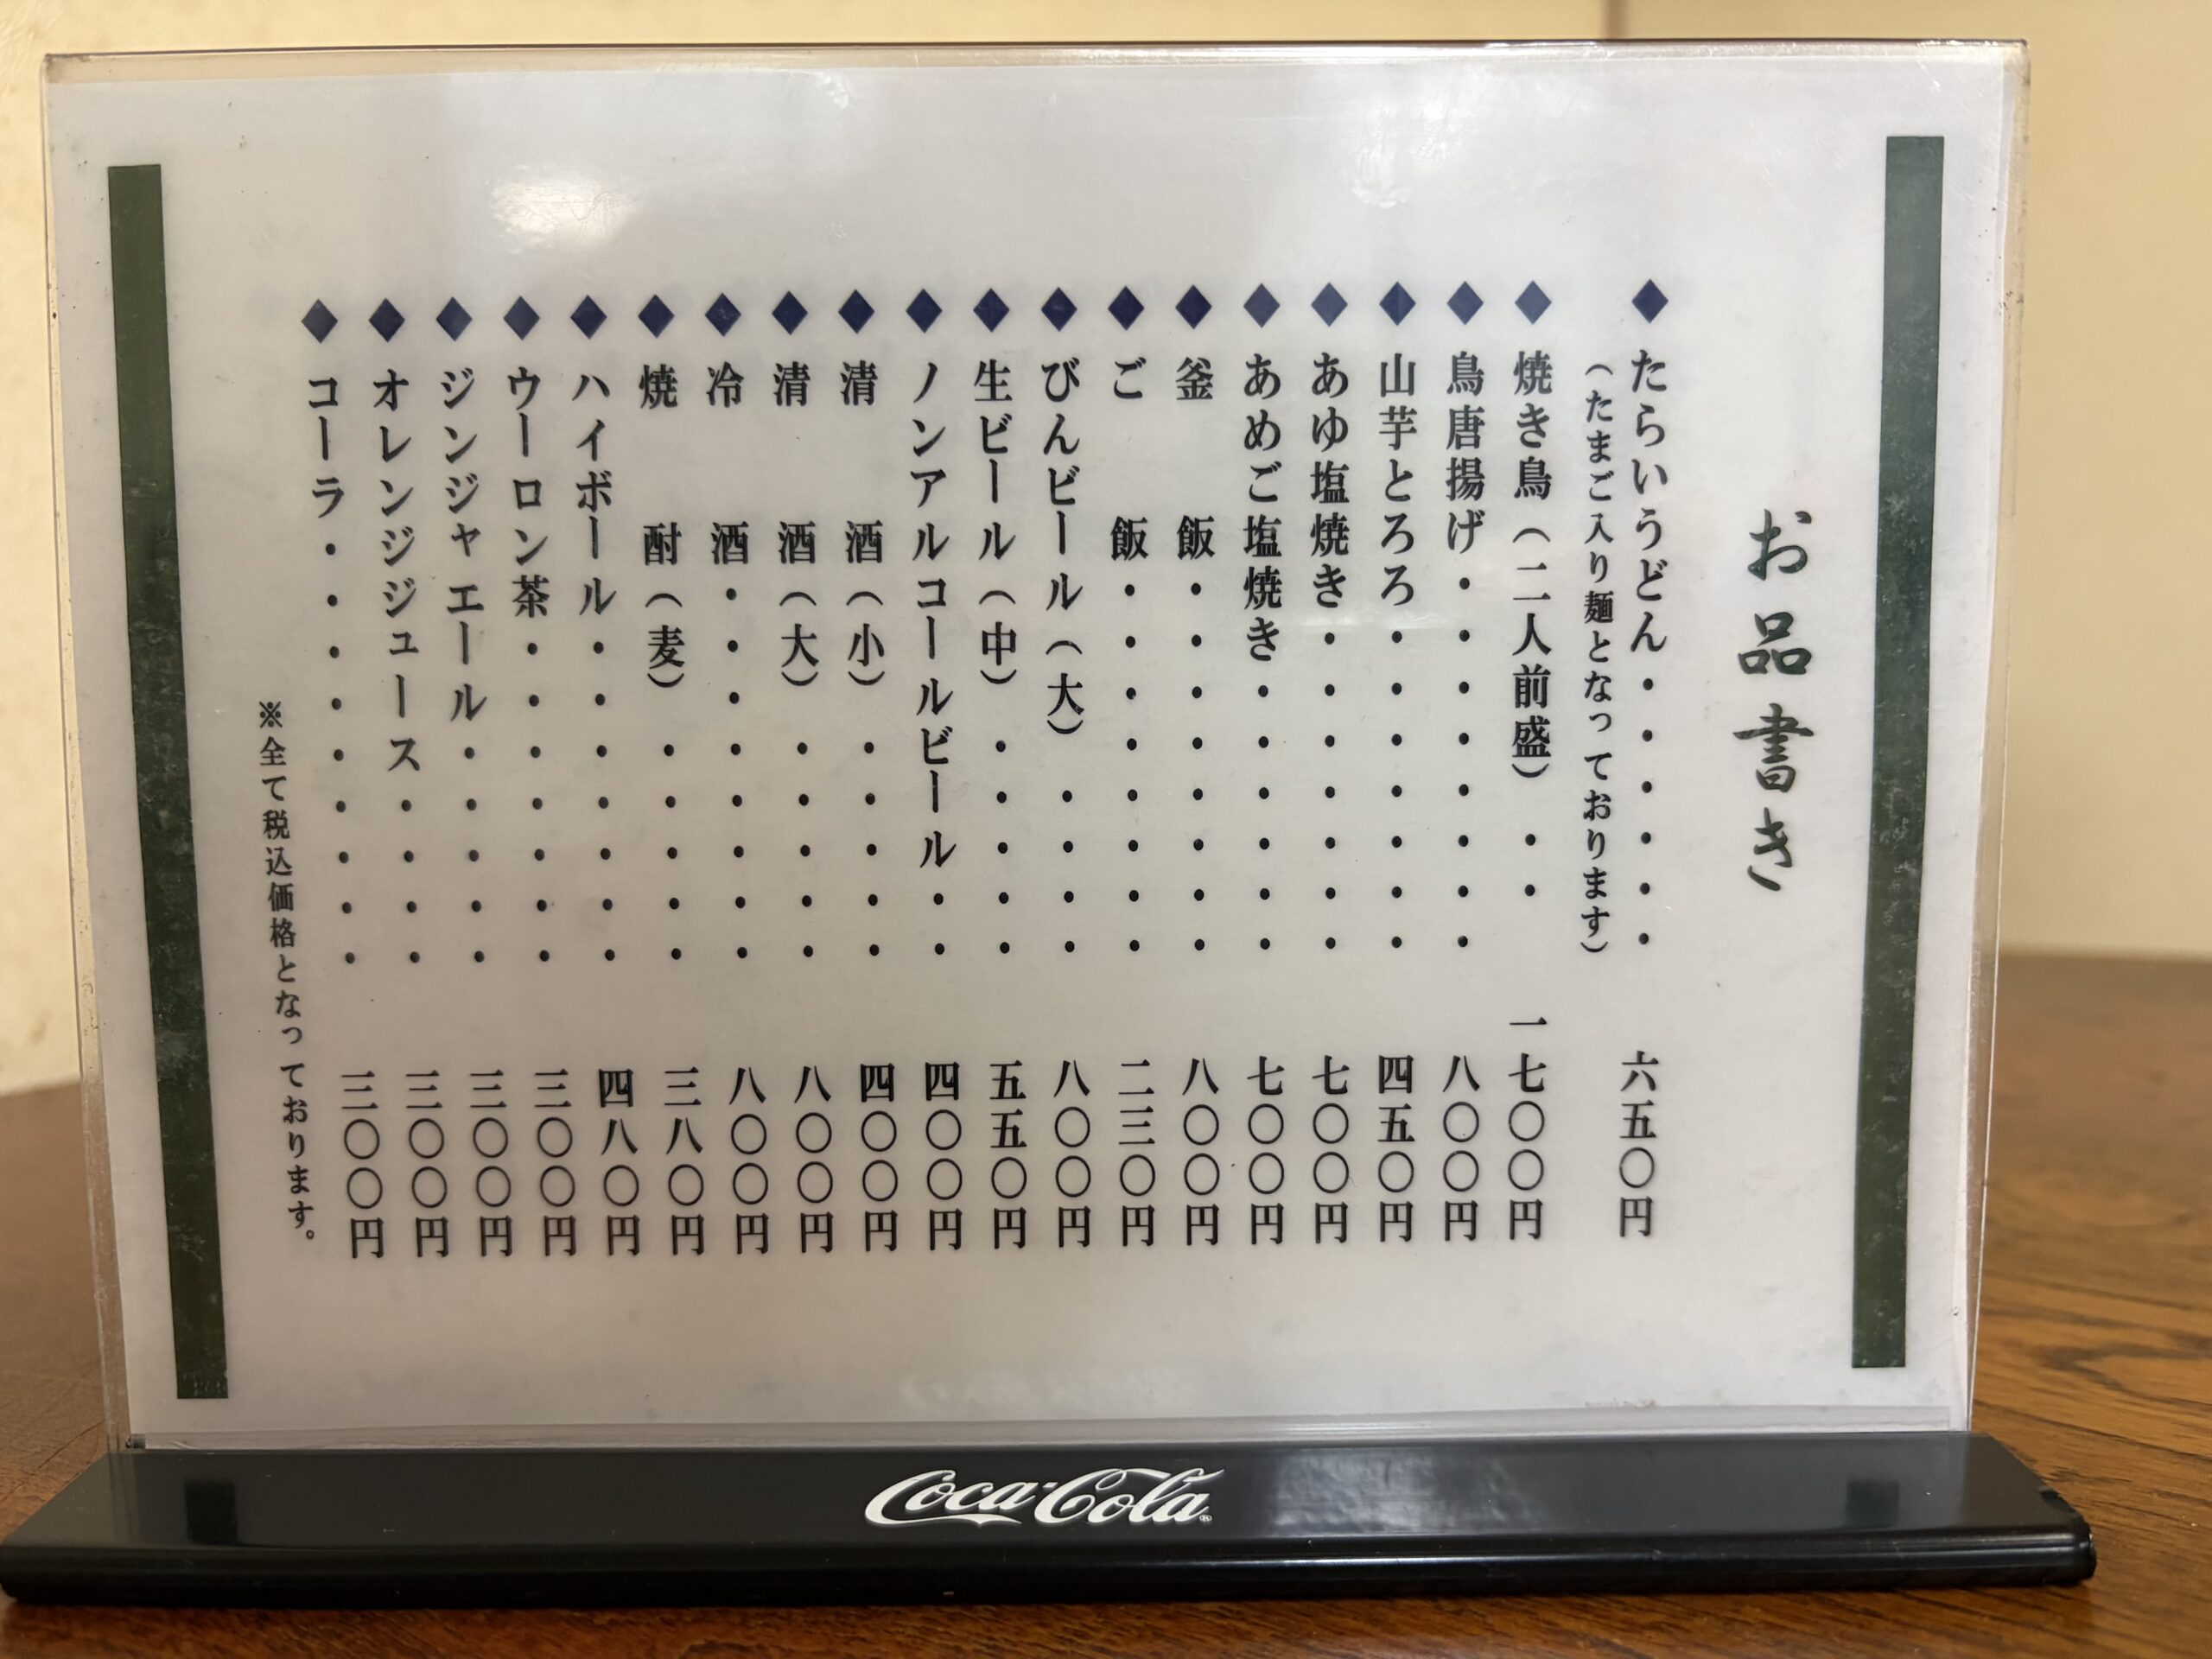 お品書き
◆たらいうどん・・・・・・六五〇円
（たまご入り麺となっております）
◆焼き鳥（二人前盛）・・一七〇〇円
◆鳥唐揚げ・・・・・・・・八〇〇円
◆山芋とろろ・・・・・・・四五〇円
◆あゆ塩焼き・・・・・・・七〇〇円
◆あめご塩焼き・・・・・・七〇〇円
◆釜飯・・・・・・・・八〇〇円
◆ご飯・・・・・・・・二三〇円
◆びんビール（大）・・・・八〇〇円
◆生ビール（中）・・・・・五五〇円
◆ノンアルコールビール・・四〇〇円
◆清酒（小）・・・・・四〇〇円
◆清酒（大）・・・・・八〇〇円
◆冷酒・・・・・・・・八〇〇円
◆焼酎（麦）・・・・・三八〇円
◆ハイボール・・・・・・・四八〇円
◆ウーロン茶・・・・・・・三〇〇円
◆ジンジャエール・・・・・三〇〇円
◆オレンジジュース・・・・三〇〇円
◆コーラ・・・・・・・・・三〇〇円
※全て税込価格となっております。
Coca-Cola®